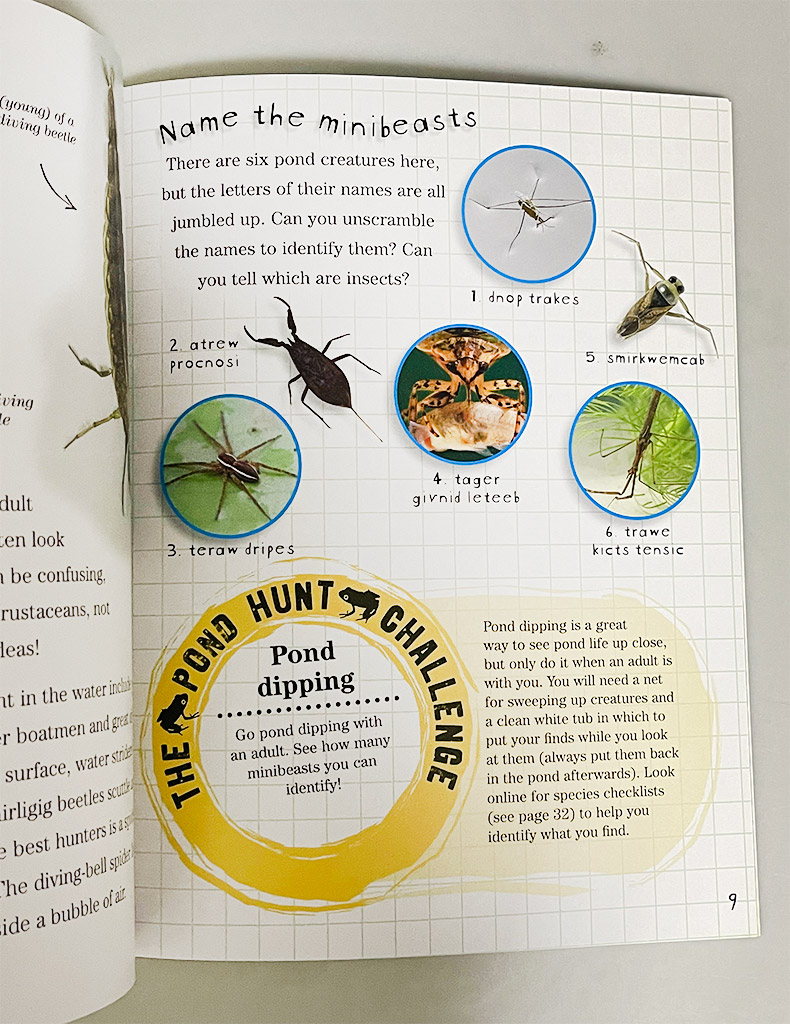 (young) of a
diving beetle
iving
le
dult
ten look
n be confusing,
rustaceans, not
deas!
nt in the water include
er boatmen and great
surface, water striders
irligig beetles
e best hunters is a
The diving-bell spider
side a bubble of air.
Name the minibeasts
There are six pond creatures here,
but the letters of their names are all
jumbled up. Can you unscramble
the names to identify them? Can
you tell which are insects?
1. dnop trakes
2. atrew
procnosi
5. smirkwemcab
4. tager
givnid leteeb
3. teraw dripes
6. trawe
kicts tensic
THE POND HUNT CHALLENGE
Pond
dipping
Go pond dipping with
an adult. See how many
minibeasts you can
identify!
Pond dipping is a great
way to see pond life up close,
but only do it when an adult is
with you. You will need a net
for sweeping up creatures and
a clean white tub in which to
put your finds while you look
at them (always put them back
in the pond afterwards). Look
online for species checklists
(see page 32) to help you
identify what you find.
9